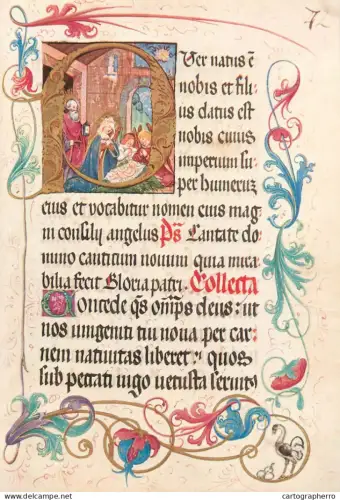 7
Puer natus ē
nobis et fili
us datus est
nobis cuius
imperium su
per humeruꝫ
eius et vocabitur nomen eius mag
ni consilij angelus Ps Cantate do
mino canticum novum quia mira
bilia fecit Gloria patri. Collecta
Concede qs omps deus: ut
nos unigeniti tui nova per car
nem nativitas liberet: quos
sub peccati iugo vetusta servitꝰ
© cartographerro